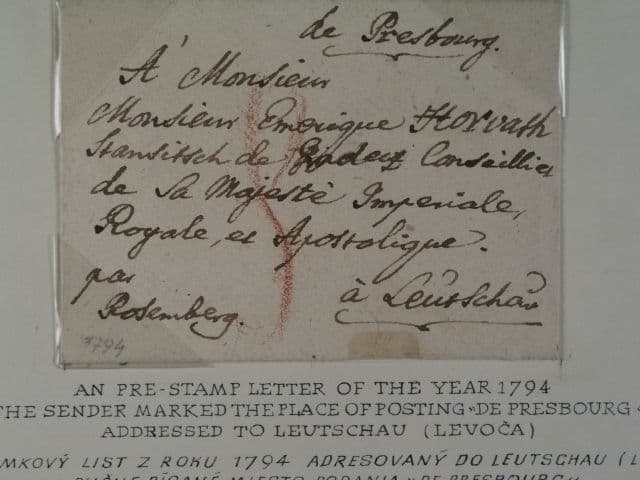 de Presbourg.
A' Monsieur
Monsieur Emerique Horvath
Stansitsch de Conseillier
de Sa Majestè Imperiale,
Royale, et Apostolique.
par
à Leutschau
Rosemberg.
1794
AN PRE-STAMP LETTER OF THE YEAR 1794
THE SENDER MARKED THE PLACE OF POSTING »DE PRESBOURG«
ADDRESSED TO LEUTSCHAU (LEVOČA)
MKOVÝ LIST Z ROKU 1794 ADRESOVANÝ DO LEUTSCHAU (L